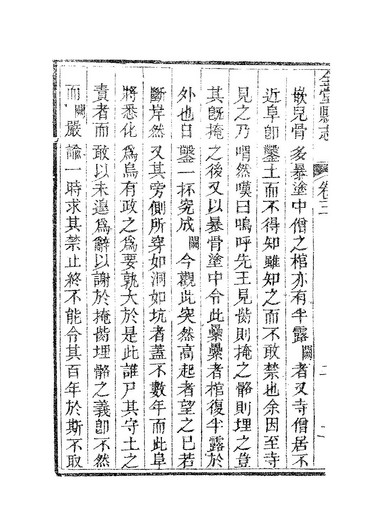 金堂縣志 卷二
歛兒骨多暴塗中僧之棺亦有半露闕者又寺僧居不
近阜卽鑿土而不得知雖知之而不敢禁也余因至寺
見之乃喟然嘆曰嗚呼先王見胔則掩之骼則埋之豈
其旣掩之後又以暴骨塗中令此纍纍者棺復半露於
外也日鑿一抔完成闕今觀此突然高起者望之已若
斷岸然又其旁側所穿如洞如坑者蓋不數年而此阜
將悉化為烏有政之為要孰大於是此誰尸其守土之
責者而敢以未遑為辭以謝於掩胔埋骼之義卽不然
而闕嚴諭一時求其禁止終不能令其百年於斯不取